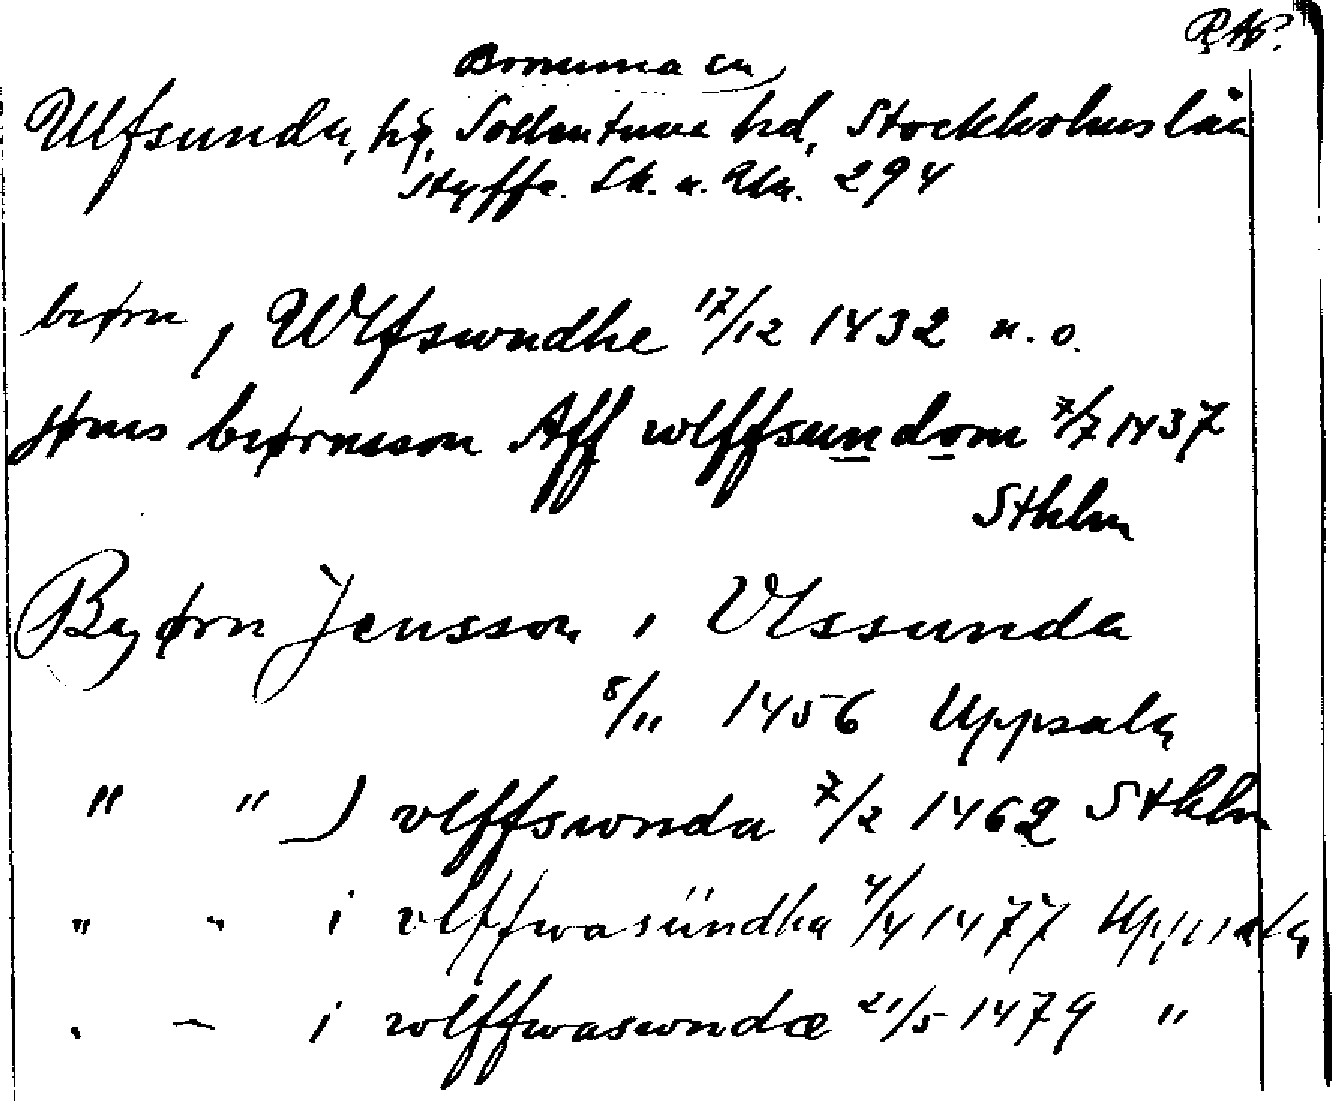 RAP.
Bromma sn
Ulfsunda, hg, Sollentuna hd, Stockholms län
Styffe. Sk. u. Un. 294
biørn, Wlfswndhe 17/12 1432 u. o.
jønis biørnsson Aff wlffsundom 7/7 1437
Sthlm
Byørn Jensson i Vlssunda
8/11 1456 Uppsala
" " J vlffswnda 7/2 1462 Sthlm
" " i vlffwasündha 4/4 1477 Uppsala
" – i wlffwaswndæ 21/5 1479 "